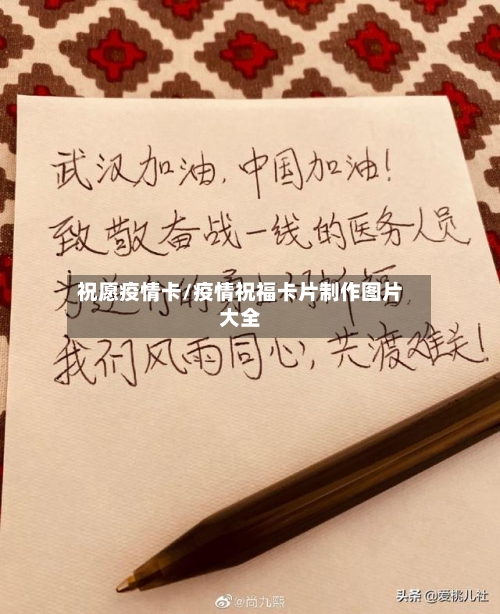 武汉加油,中国加油!
致敬奋战一线的医务人员,
为逆行的勇士们祈福,
祝愿疫情卡/疫情祝福卡片制作图片
大全
我们风雨同心,共渡难关!
@尚九熙
头条 @爱桃儿社